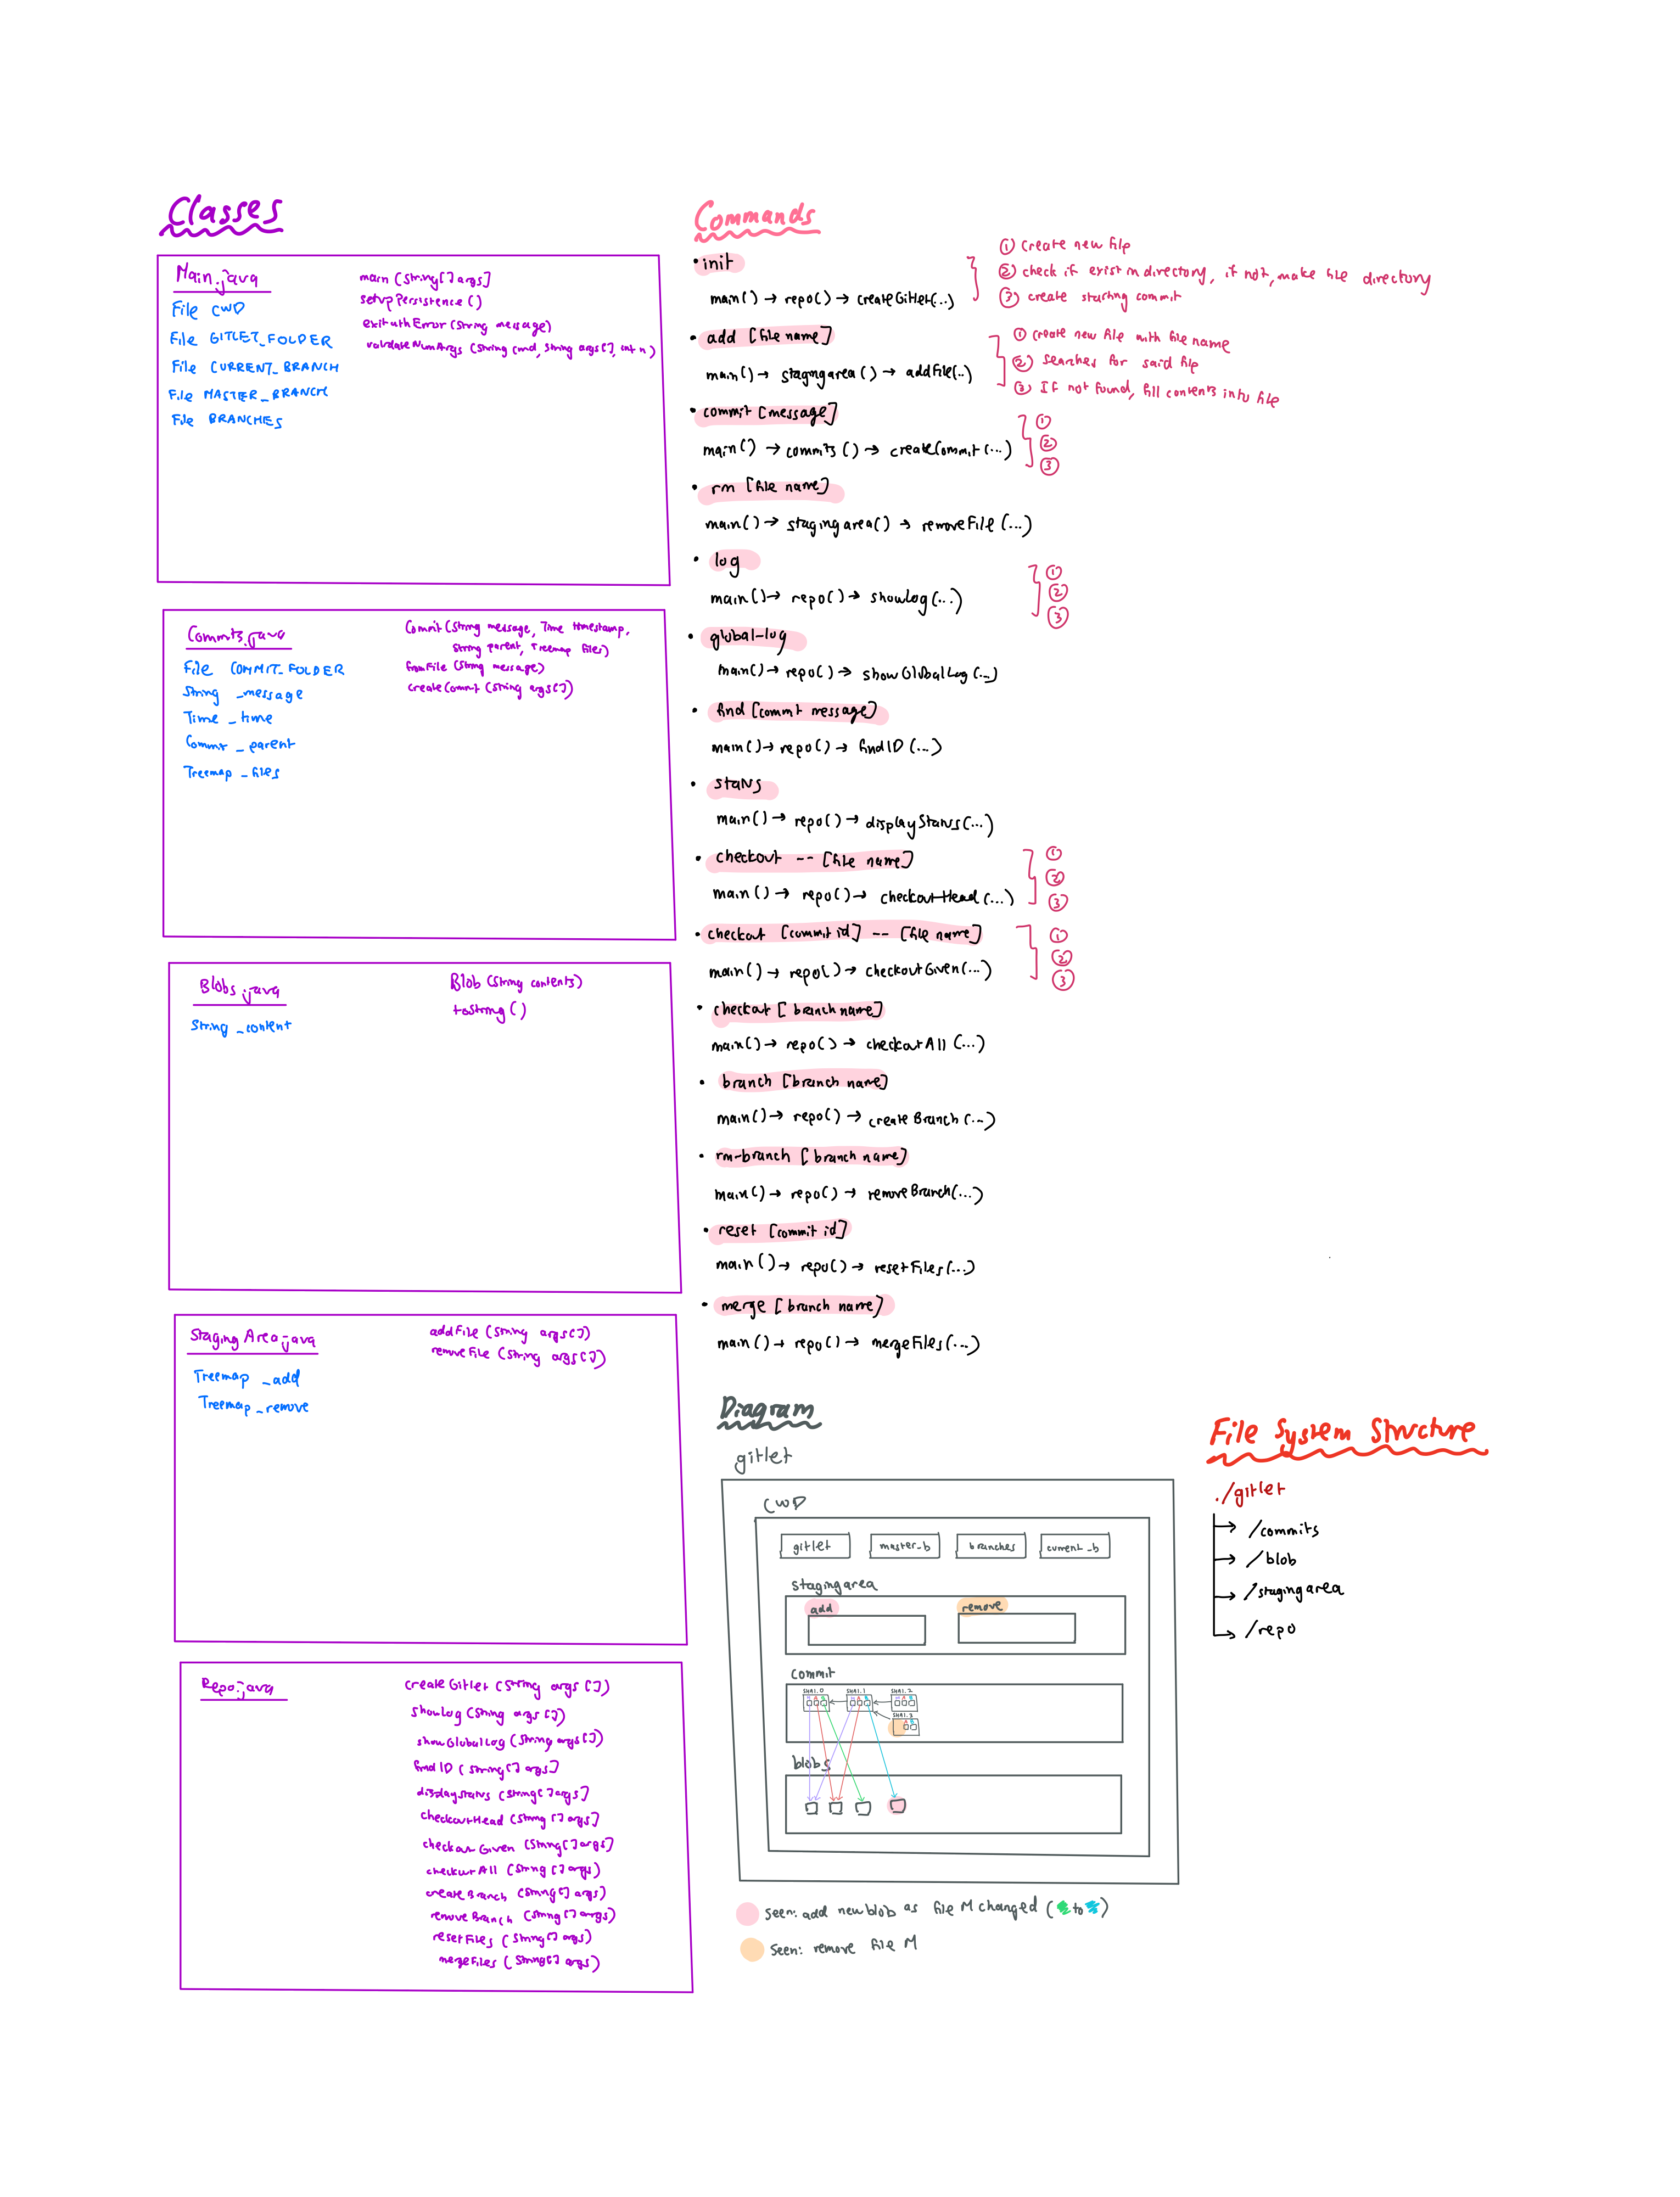 Classes
Main.java
File CWD
File GITLET_FOLDER
File CURRENT_BRANCH
File MASTER_BRANCH
File BRANCHES
main (String[] args]
setup Persistence ()
exitWithError (String message)
validateNumArgs (String cmd, String args[], int n)
Commits.java
File COMMIT_FOLDER
String _message
Time _time
Commit _parent
Treemap _files
Commit (String message, Time timestamp,
String parent, Treemap files)
fromFile (String message)
createCommit (String args[])
Blobs.java
String _content
Blob (String contents)
toString ()
Staging Area.java
Treemap _add
Treemap _remove
addFile (String args[])
removeFile (String args[])
Repo.java
createGitlet (String args [])
showLog (String args [])
showGlobalLog (String args[])
findID (String[] args]
displayStatus (String[] args]
checkoutHead (String [] args]
checkoutGiven (String[] args]
checkoutAll (String [] args)
createBranch (String[] args)
removeBranch (String[] args)
resetFiles (String[] args)
mergeFiles (String[] args)
Commands
• init
main() → repo() → createGitlet(...)
① create new file
② check if exist in directory, if not, make file directory
③ create starting commit
• add [file name]
main() → stagingarea() → addFile(..)
① create new file with file name
② Searches for said file
③ If not found, fill contents into file
• commit [message]
main() → commits () → createCommit (...)
①
②
③
• rm [file name]
main() → stagingarea() → removeFile (...)
• log
main() → repo() → showLog (...)
①
②
③
• global-log
main() → repo() → showGlobalLog (...)
• find [commit message]
main() → repo() → findID (...)
• status
main() → repo() → displayStatus (...)
• checkout -- [file name]
main() → repo() → checkoutHead (...)
①
②
③
• checkout [commit id] -- [file name]
main() → repo() → checkoutGiven (...)
①
②
③
• checkout [branch name]
main() → repo() → checkoutAll (...)
• branch [branch name]
main() → repo() → createBranch (...)
• rm-branch [branch name]
main() → repo() → removeBranch(...)
• reset [commit id]
main() → repo() → resetFiles (...)
• merge [branch name]
main() → repo() → mergeFiles (...)
Diagram
gitlet
CWD
gitlet master_b branches current_b
stagingarea
add remove
commit
SHA1.0 SHA1.1 SHA1.2
SHA1.3
blobs
seen: add new blob as file M changed ( to )
seen: remove file M
File System Structure
./gitlet
→ /commits
→ /blob
→ /stagingarea
→ /repo